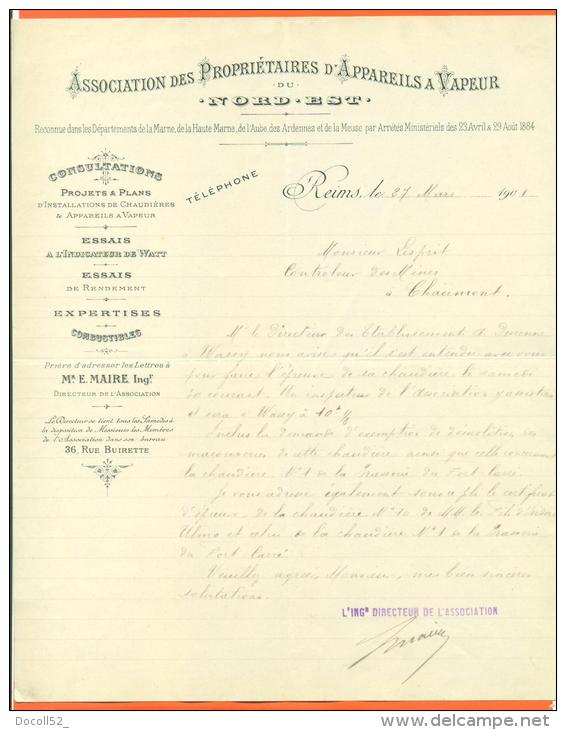 ASSOCIATION DES PROPRIÉTAIRES D'APPAREILS A VAPEUR
DU
NORD-EST
Reconnue dans les Départements de la Marne, de la Haute-Marne, de l'Aube, des Ardennes et de la Meuse par Arrêtés Ministériels des 23 Avril & 29 Août 1884
CONSULTATIONS
PROJETS & PLANS
D'INSTALLATIONS DE CHAUDIÈRES
& APPAREILS A VAPEUR
ESSAIS
A L'INDICATEUR DE WATT
ESSAIS
DE RENDEMENT
EXPERTISES
COMBUSTIBLES
Prière d'adresser les Lettres à
Mr. E. MAIRE Ingr.
DIRECTEUR DE L'ASSOCIATION
Le Directeur se tient tous les Samedis à
la disposition de Messieurs les Membres
de l'Association dans son bureau
36, RUE BUIRETTE
TÉLÉPHONE
Reims, le 27 Mars 1901
Monsieur Lesprit
Controleur des Mines
à Chaumont.
M. le Directeur des Etablissement de
à Wassy nous avise qu'il s'est entendu avec vous
pour faire l'épreuve de sa chaudière le samedi
30 courant. Un inspecteur de l'Association
et sera à Wassy à 10h 1/2
Inclus la demande d'exemption de démolition des
maçonneries de cette chaudière ainsi que celle concernant
la chaudière No 1 de la Brasserie du Fort Carré.
Je vous adresse également sous ce pli le certificat
d'épreuve de la chaudière No 10 de MM. le
Ulmo et celui de la chaudière No 1 de la Brasserie
du Fort Carré.
Veuillez agréer, Monsieur, mes bien sincères
salutations.
L'INGR DIRECTEUR DE L'ASSOCIATION
Maire
Docoll52_
delcampe.net